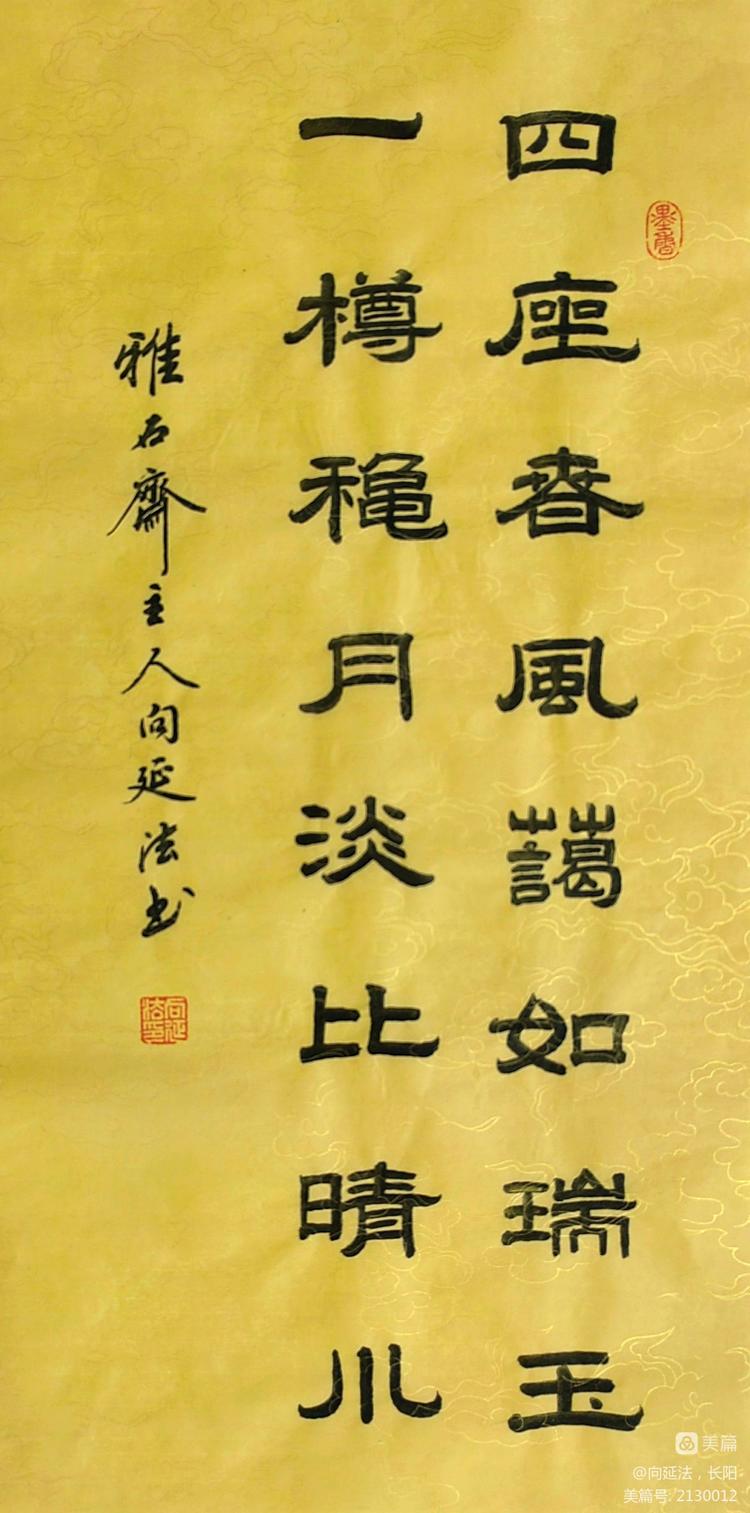 四座春風藹如瑞玉
一樽穐月淡比晴川
雅石齋主人向延法书
墨香
向延法印
美篇
@向延法，长阳
美篇号: 2130012